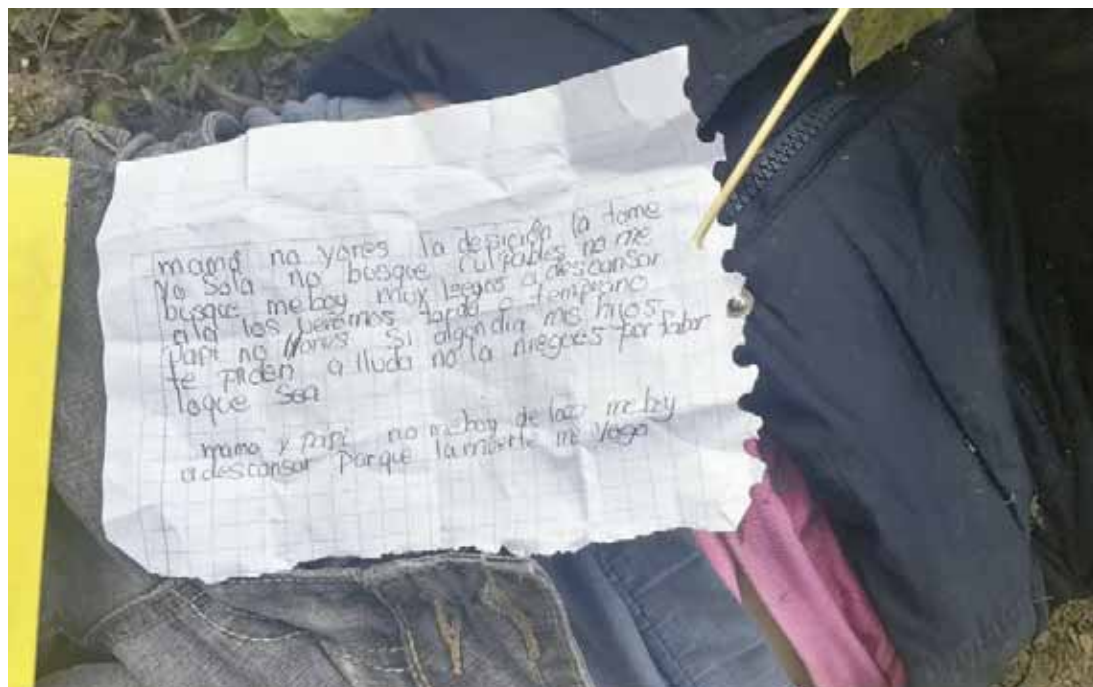 mamá no yores la depición la tome
Yo Sola no busque culpables no me
busque me boy muy legos a descansar
ala los beremos tarde o temprano
Papi no llores Si algundia mis hijos
te piden alluda no la niegues por fabor
loque Sea
mama y papi no me boy de loca me boy
a descansar Porque la muerte me